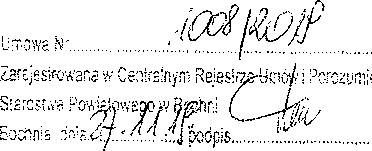 Umowa Nr 1008/2018
Zarejestrowana w Centralnym Rejestrze Umów i Porozumi
Starostwa Powiatowego w Bochni
Bochnia, dnia 27.11.18 podpis